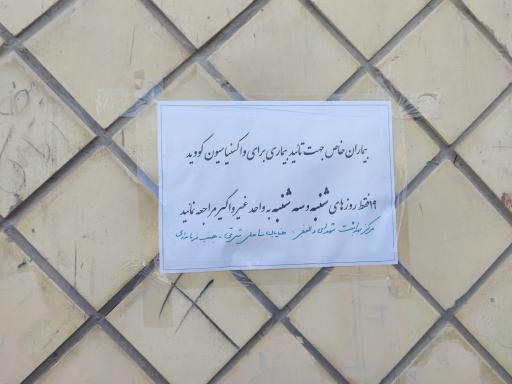 بیماران خاص جهت تائید بیماری برای واکسیناسیون کووید
۱۹فقط روزهای شنبه و سه شنبه به واحد غیر واگیر مراجعه نمائید
مرکز بهداشت شهدای والفجر - خیابان ساحلی شرقی - جنب فرمانداری